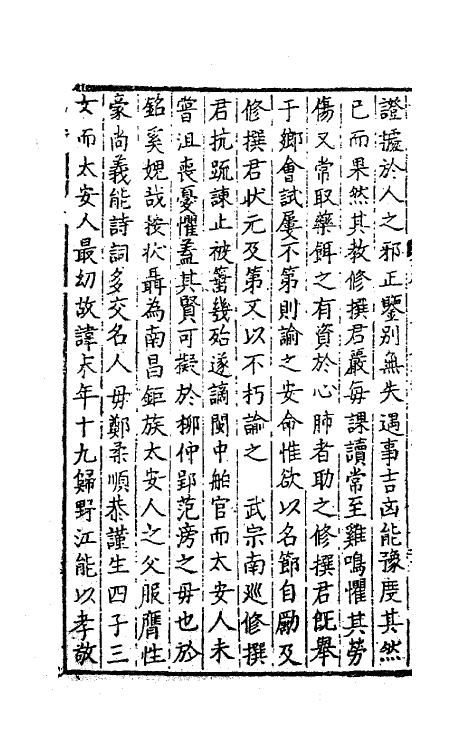 證據於人之邪正鑒別無失遇事吉凶能豫度其然
已而果然其教修撰君嚴每課讀常至雞鳴懼其勞
傷又常取藥餌之有資於心肺者助之修撰君旣舉
于鄉會試屢不第則諭之安命惟欲以名節自勵及
修撰君狀元及第又以不朽諭之　武宗南巡修撰
君抗疏諫止被箠幾殆遂謫閩中舶官而太安人未
嘗沮喪憂懼蓋其賢可擬於柳仲郢范滂之毋也於
銘奚媿哉按狀聶為南昌鉅族太安人之父服膺性
豪尚義能詩詞多交名人毋鄭柔順恭謹生四子三
女而太安人最幼故諱未年十九歸野江能以孝敬